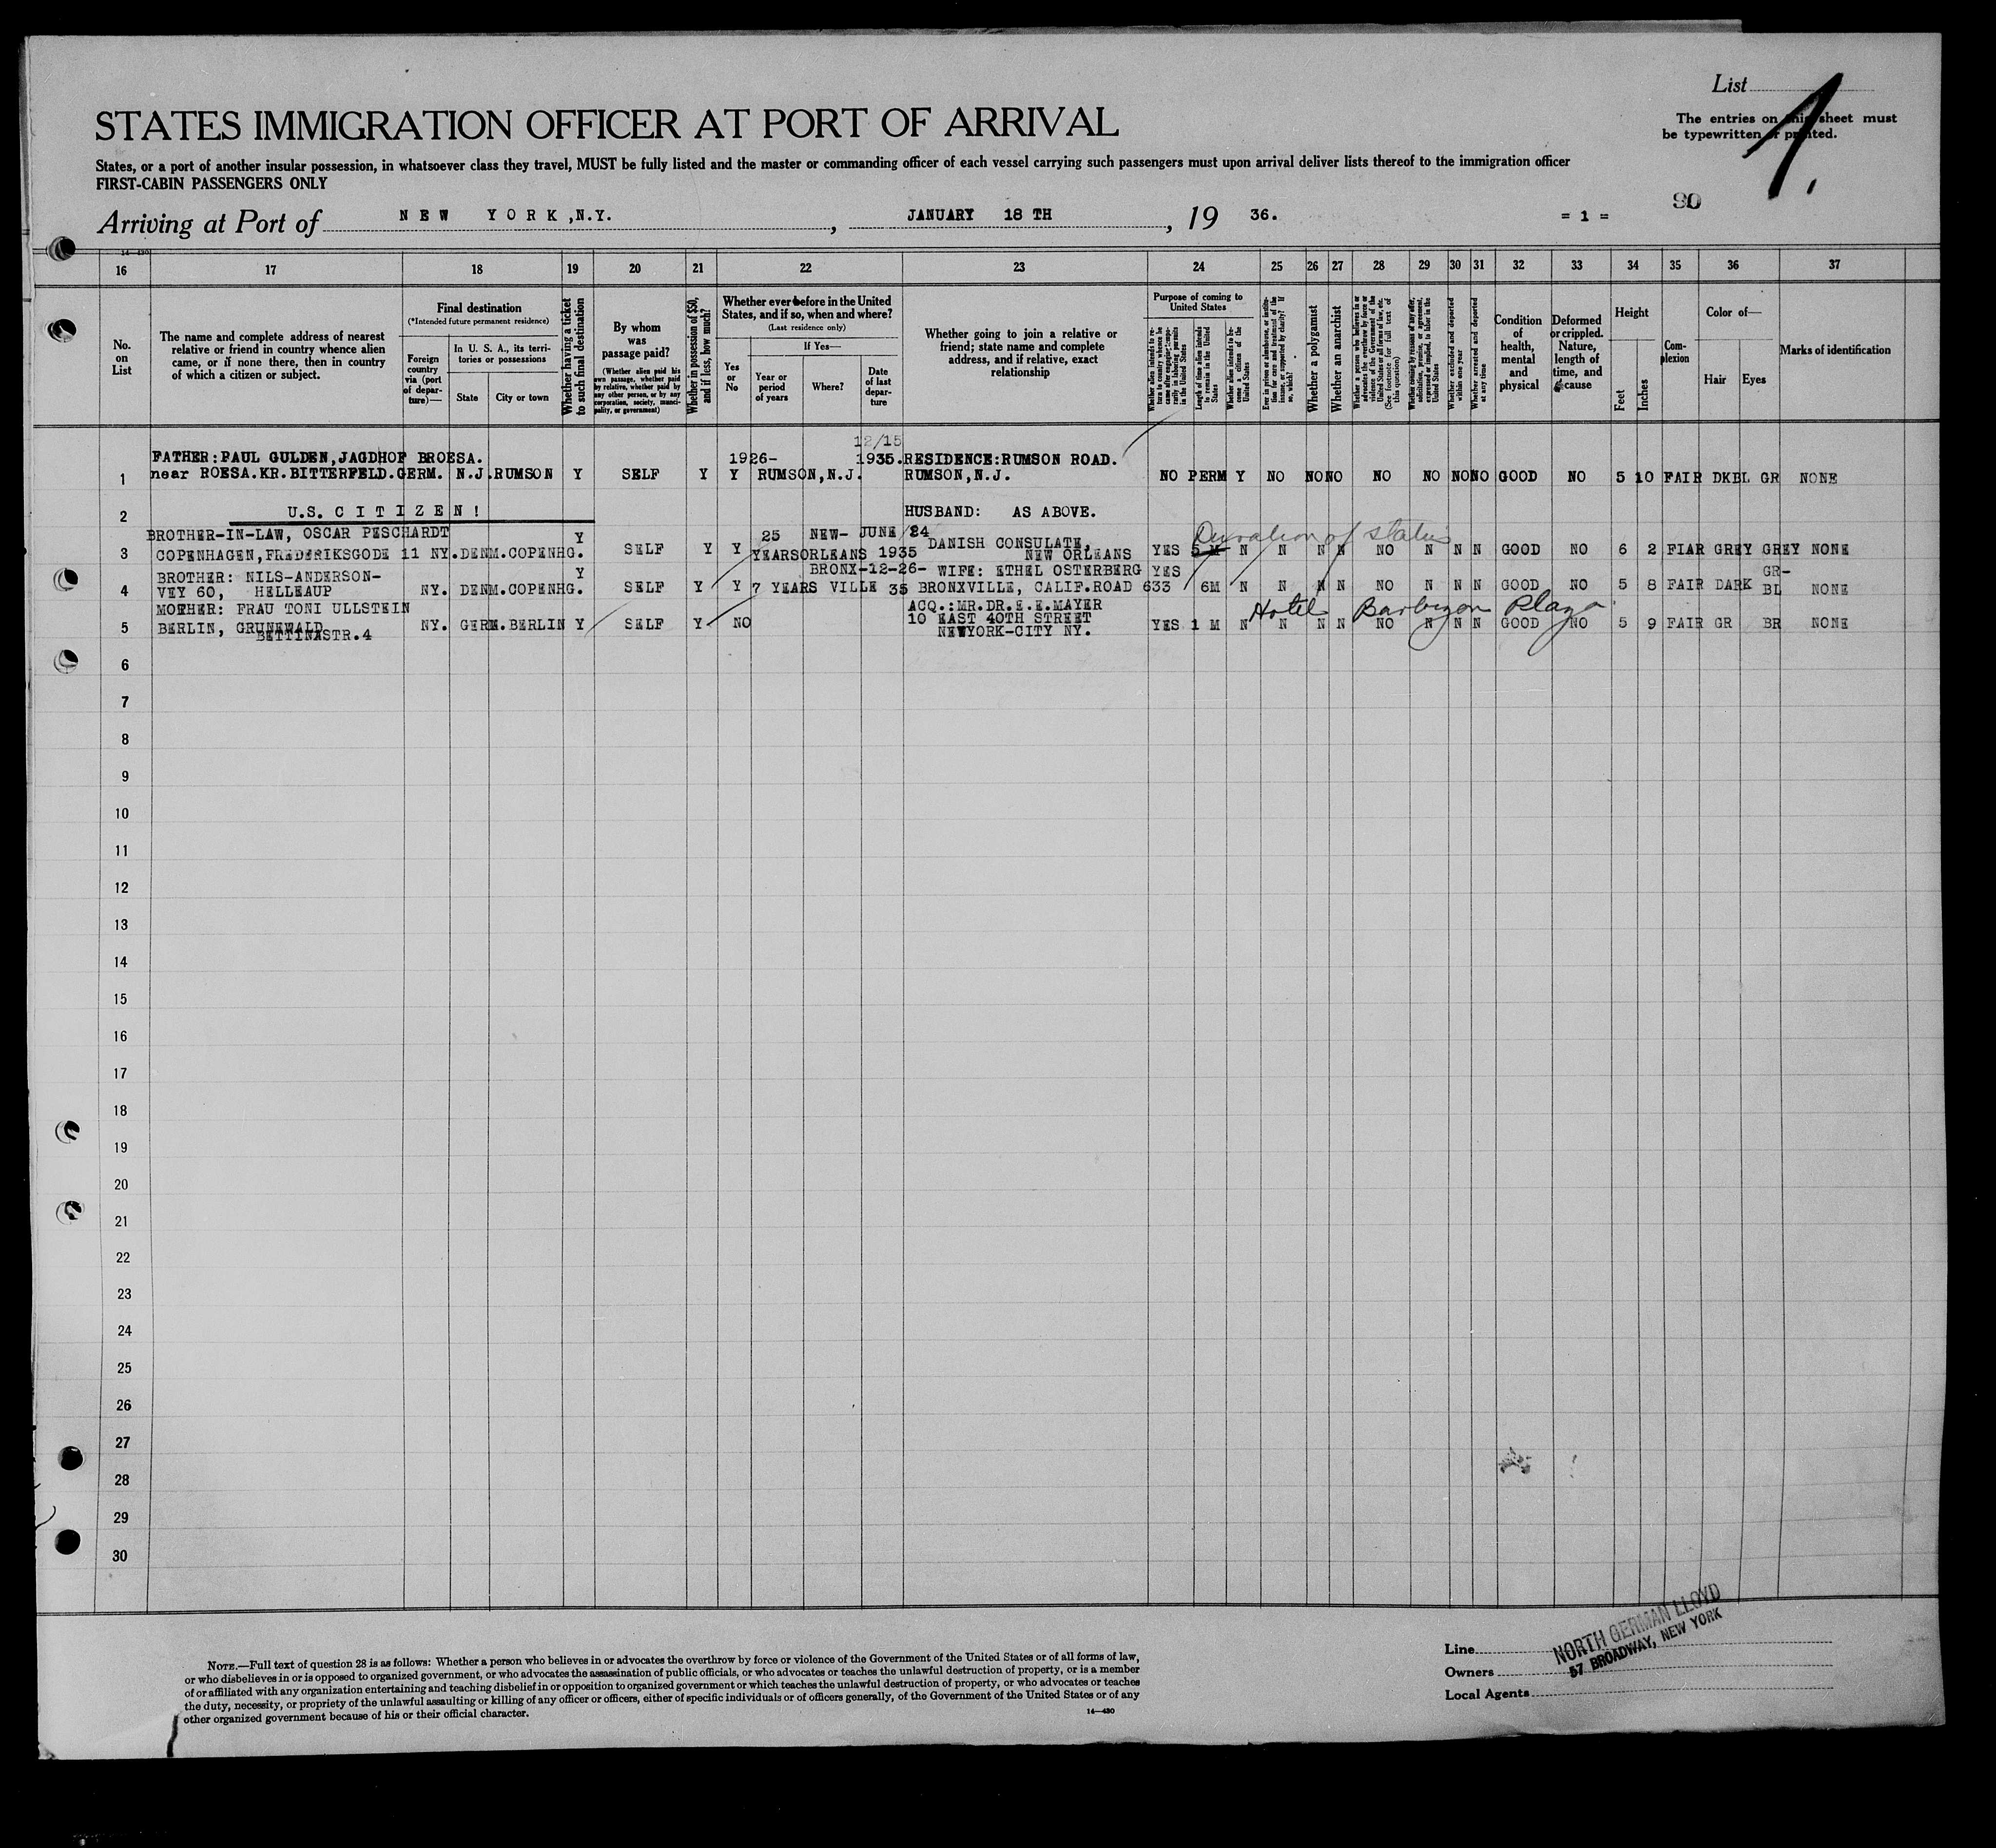 List
The entries on this sheet must
be typewritten or printed.
1.
STATES IMMIGRATION OFFICER AT PORT OF ARRIVAL
States, or a port of another insular possession, in whatsoever class they travel, MUST be fully listed and the master or commanding officer of each vessel carrying such passengers must upon arrival deliver lists thereof to the immigration officer
FIRST-CABIN PASSENGERS ONLY
Arriving at Port of NEW YORK, N.Y., JANUARY 18 TH, 19 36. = 1 = 90
14—430
16 17 18 19 20 21 22 23 24 25 26 27 28 29 30 31 32 33 34 35 36 37
No. on List
The name and complete address of nearest
relative or friend in country whence alien
came, or if none there, then in country
of which a citizen or subject.
Final destination
(*Intended future permanent residence)
Foreign country via (port of departure)—
In U. S. A., its territories or possessions
State
City or town
Whether having a ticket to such final destination
By whom was passage paid?
(Whether alien paid his own passage, whether paid by relative, whether paid by any other person, or by any corporation, society, municipality, or government)
Whether in possession of $50, and if less, how much?
Whether ever before in the United
States, and if so, when and where?
(Last residence only)
Yes or No
If Yes—
Year or period of years
Where?
Date of last departure
Whether going to join a relative or
friend; state name and complete
address, and if relative, exact
relationship
Purpose of coming to United States
Length of time alien intends to remain in the United States
Whether alien intends to become a citizen of the United States
Whether a polygamist
Whether an anarchist
Whether excluded and deported within one year
Whether arrested and deported at any time
Condition of health, mental and physical
Deformed or crippled. Nature, length of time, and cause
Height
Feet
Inches
Complexion
Color of—
Hair
Eyes
Marks of identification
12/15
FATHER:PAUL GULDEN,JAGDHOF BROESA. 1926- 1935. RESIDENCE:RUMSON ROAD.
1 near ROESA.KR.BITTERFELD.GERM. N.J. RUMSON Y SELF Y Y RUMSON,N.J. RUMSON,N.J. NO PERM Y NO NO NO NO NO NO NO GOOD NO 5 10 FAIR DKBL GR NONE
2 U.S. C I T I Z E N ! HUSBAND: AS ABOVE.
BROTHER-IN-LAW, OSCAR PESCHARDT Y 25 NEW- JUNE/24 Duration of status
3 COPENHAGEN,FREDERIKSGODE 11 NY. DENM.COPENHG. SELF Y Y YEARS ORLEANS 1935 DANISH CONSULATE, NEW ORLEANS YES 5 M N N N N NO N N N GOOD NO 6 2 FIAR GREY GREY NONE
BROTHER: NILS-ANDERSON- Y BRONX-12-26- WIFE: ETHEL OSTERBERG YES GR-
4 VEY 60, HELLEAUP NY. DENM.COPENHG. SELF Y Y 7 YEARS VILLE 35 BRONXVILLE, CALIF.ROAD 633 6M N N N N NO N N N GOOD NO 5 8 FAIR DARK BL NONE
MOTHER: FRAU TONI ULLSTEIN ACQ.:MR.DR.E.E.MAYER Hotel Barbizon Plaza
5 BERLIN, GRUNEWALD NY. GERM. BERLIN Y SELF Y NO 10 EAST 40TH STREET YES 1 M N N N N NO N N N GOOD NO 5 9 FAIR GR BR NONE
BETTINASTR.4 NEWYORK-CITY NY.
6
7
8
9
10
11
12
13
14
15
16
17
18
19
20
21
22
23
24
25
26
27
28
29
30
NOTE.—Full text of question 28 is as follows: Whether a person who believes in or advocates the overthrow by force or violence of the Government of the United States or of all forms of law,
or who disbelieves in or is opposed to organized government, or who advocates the assassination of public officials, or who advocates or teaches the unlawful destruction of property, or is a member
of or affiliated with any organization entertaining and teaching disbelief in or opposition to organized government or which teaches the unlawful destruction of property, or who advocates or teaches
the duty, necessity, or propriety of the unlawful assaulting or killing of any officer or officers, either of specific individuals or of officers generally, of the Government of the United States or of any
other organized government because of his or their official character.
14—430
Line
Owners
Local Agents
NORTH GERMAN LLOYD
57 BROADWAY, NEW YORK